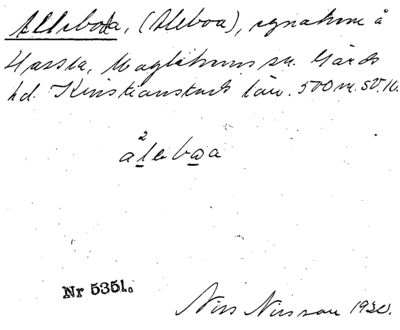 Alleboda, (Aleboa), egnahem å
Hassla, Maglehems sn. Gärds
hd. Kristianstads län. 500 m. SV.
2
åleboa
Nr 5351.
Nils Nilsson 1930.